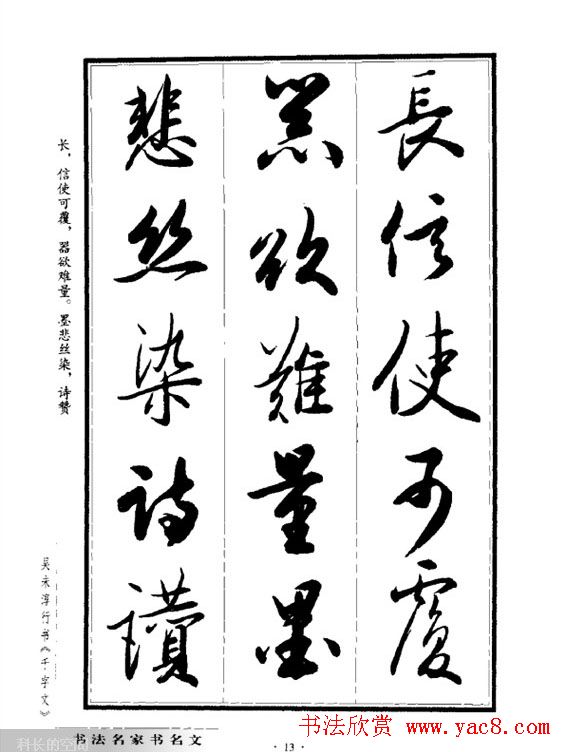 長信使可覆
器欲難量墨
悲丝染詩讃
长，信使可覆，器欲难量。墨悲丝染，诗赞
吴未淳行书《千字文》
书法名家书名文
· 13 ·
书法欣赏 www.yac8.com
科长的空间